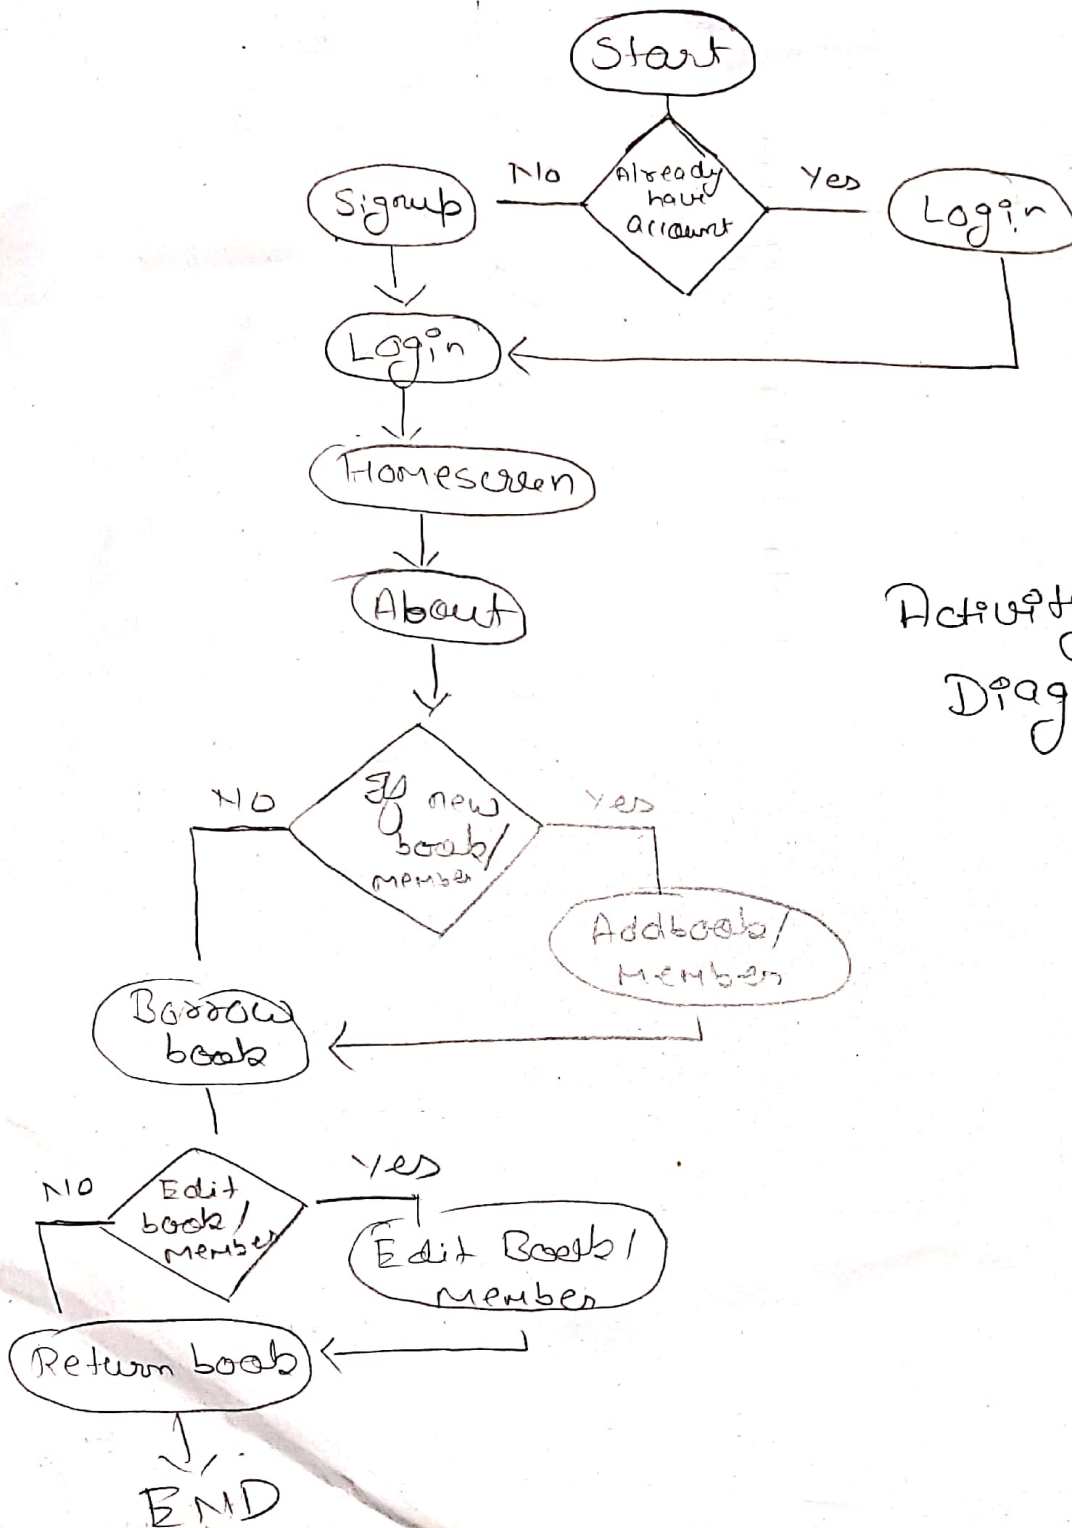 Start
Already
have
account
No
Yes
Signup
Login
Login
Homescreen
About
Activity
Diag
If new
book/
member
NO
Yes
Addbook/
Member
Borrow
book
Edit
book/
Member
NO
Yes
Edit Book/
Member
Return book
END